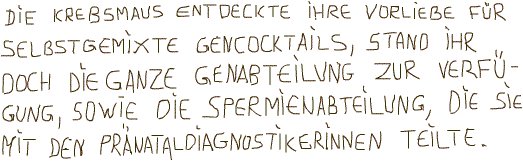 DIE KREBSMAUS ENTDECKTE IHRE VORLIEBE FÜR
SELBSTGEMIXTE GENCOCKTAILS, STAND IHR
DOCH DIE GANZE GENABTEILUNG ZUR VERFÜ-
GUNG, SOWIE DIE SPERMIENABTEILUNG, DIE SIE
MIT DEN PRÄNATALDIAGNOSTIKERINNEN TEILTE.